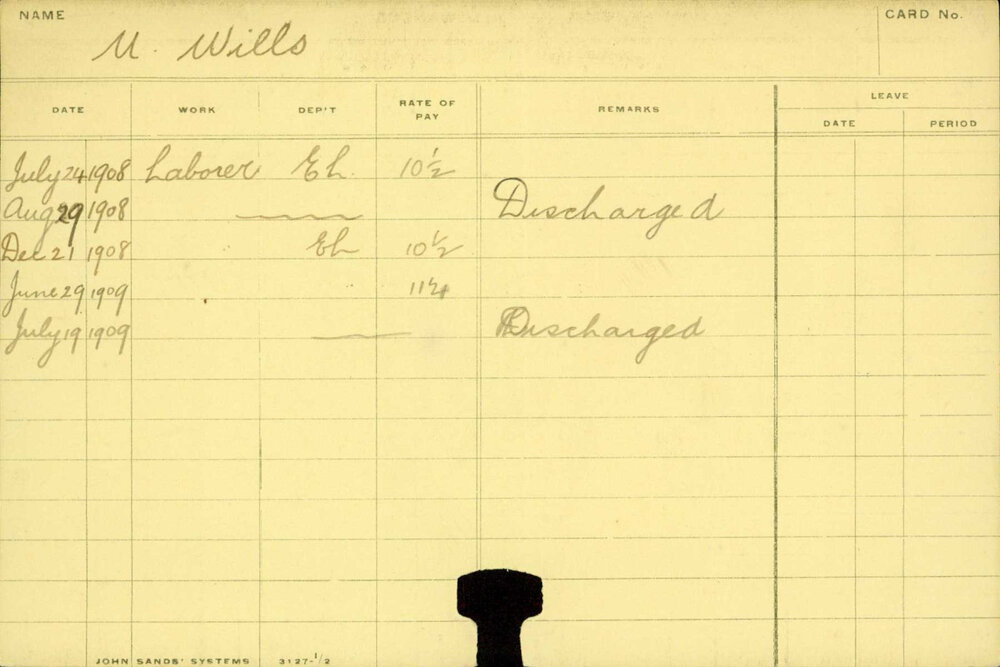 NAME
CARD No.
M. Wills
DATE WORK DEP'T RATE OF PAY REMARKS LEAVE
DATE PERIOD
July 24 1908 Laborer Eh. 10½
Aug 29 1908 Discharged
Dec 21 1908 Eh 10½
June 29 1909
July 19 1909 Discharged
JOHN SANDS' SYSTEMS 3127-1/2